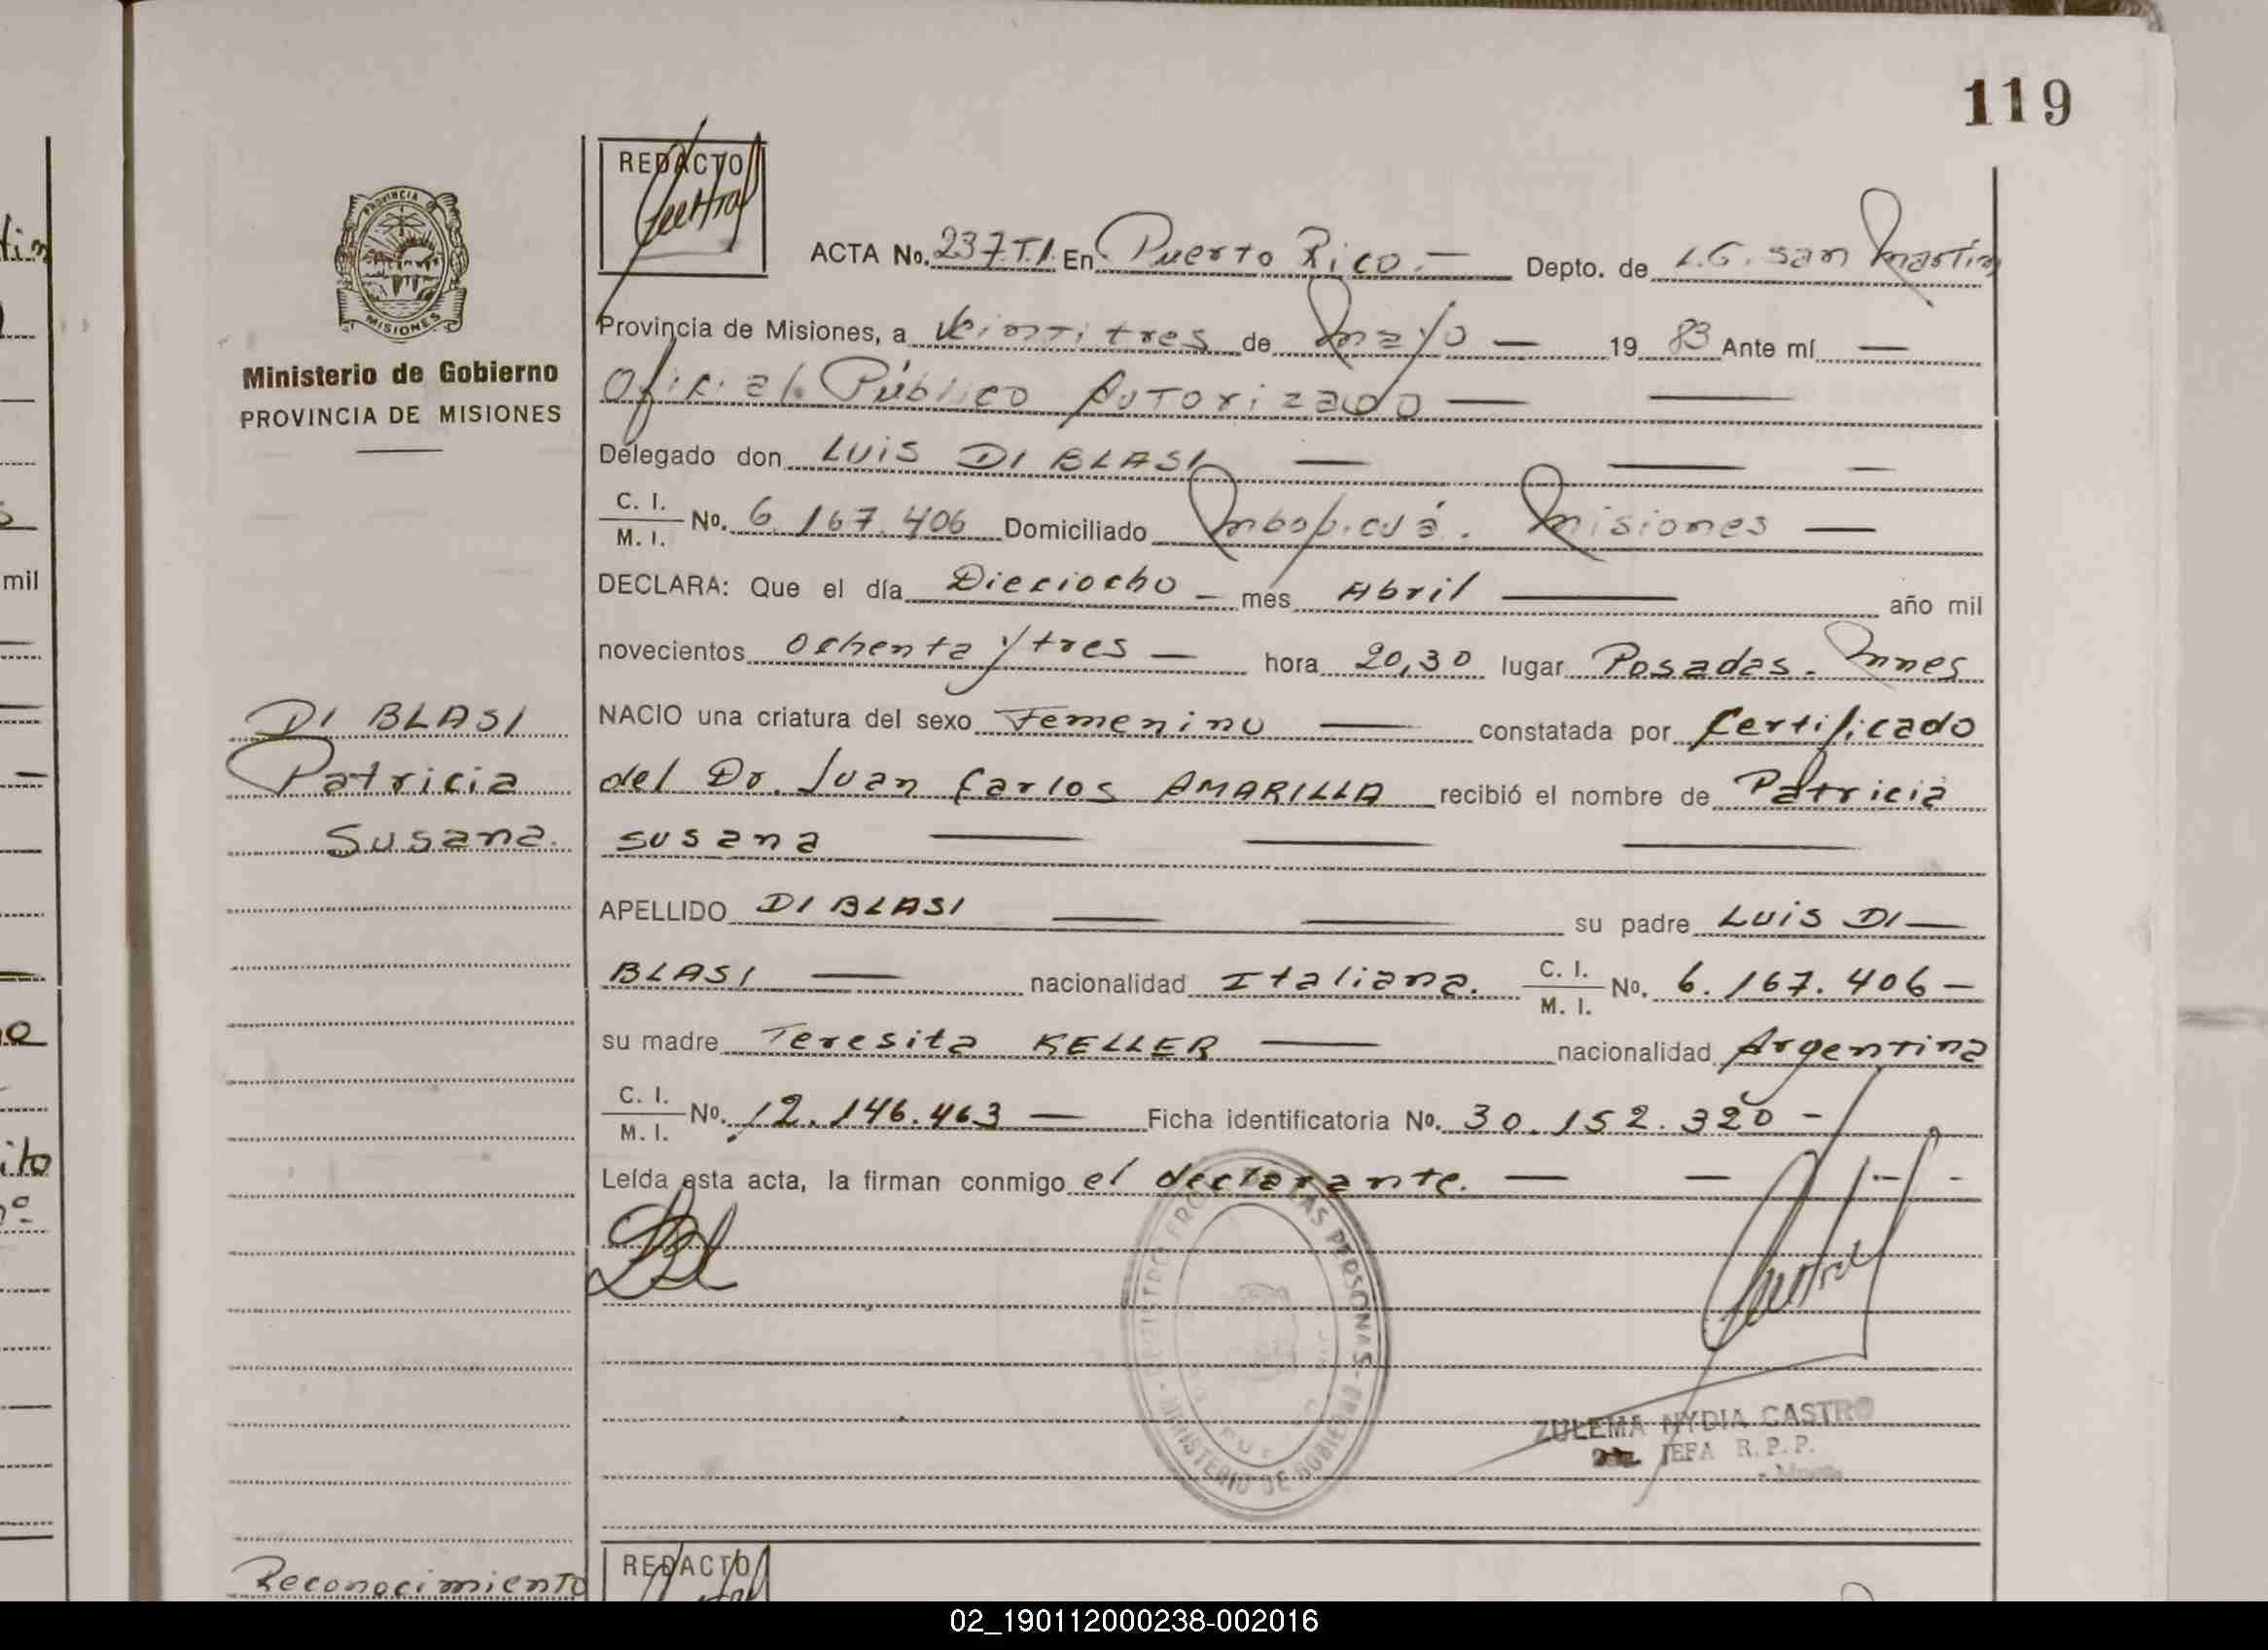 119
REDACTO
ACTA No. 237.T.I. En Puerto Rico.— Depto. de L.G. San Martín
Provincia de Misiones, a Veintitres de Mayo — 19 83 Ante mí —
Oficial Público Autorizado —
Delegado don Luis DI BLASI —
C. I.
M. I.
No. 6.167.406 Domiciliado Mbopicuá. Misiones —
DECLARA: Que el día Dieciocho — mes Abril — año mil
novecientos Ochenta y tres — hora 20,30 lugar Posadas. Mnes
NACIO una criatura del sexo Femenino — constatada por Certificado
del Dr. Juan Carlos AMARILLA recibió el nombre de Patricia
Susana —
APELLIDO DI BLASI — su padre Luis DI —
BLASI — nacionalidad Italiana. C. I. M. I. No. 6.167.406 —
su madre Teresita KELLER — nacionalidad Argentina
C. I.
M. I.
No. 12.146.463 — Ficha identificatoria No. 30.152.320 -
Leída esta acta, la firman conmigo el declarante. —
PROVINCIA
MISIONES
Ministerio de Gobierno
PROVINCIA DE MISIONES
DI BLASI
Patricia
Susana.
LAS PERSONAS
MINISTERIO DE GOBIERNO
ZULEMA NYDIA CASTRO
JEFA R. P. P.
Reconocimiento
REDACTO
mil
02_190112000238-002016